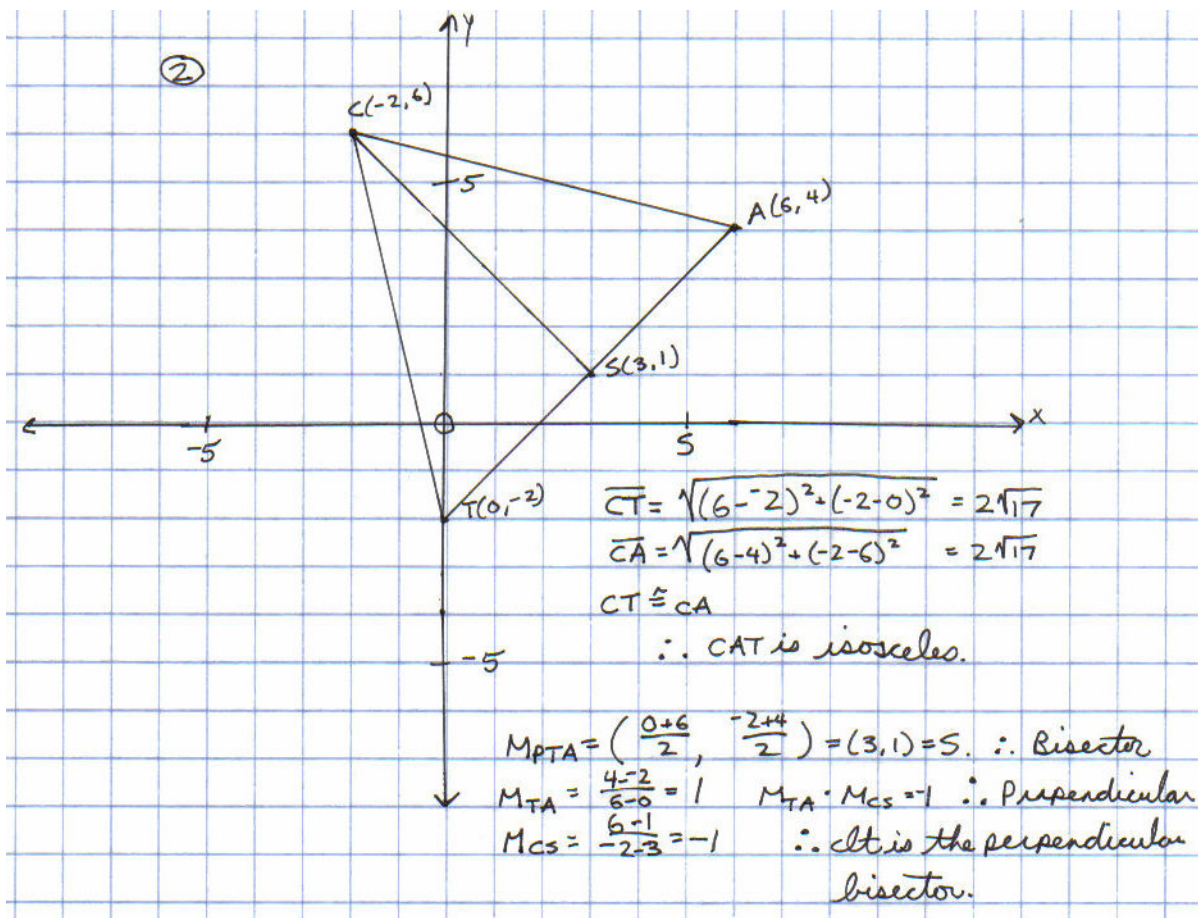 y
②
C(-2,6)
5
A(6,4)
S(3,1)
x
-5
O
5
T(0,-2)
C̅T̅ = √((6-⁻2)² + (-2-0)²) = 2√17
C̅A̅ = √((6-4)² + (-2-6)²) = 2√17
CT ≅ CA
∴ CAT is isosceles.
-5
M_PTA = (0+6/2, -2+4/2) = (3,1) = S. ∴ Bisector
M_TA = 4-⁻2/6-0 = 1 M_TA · M_CS = -1 ∴ Prpendicular
M_CS = 6-1/-2-3 = -1 ∴ It is the perpendicular
bisector.